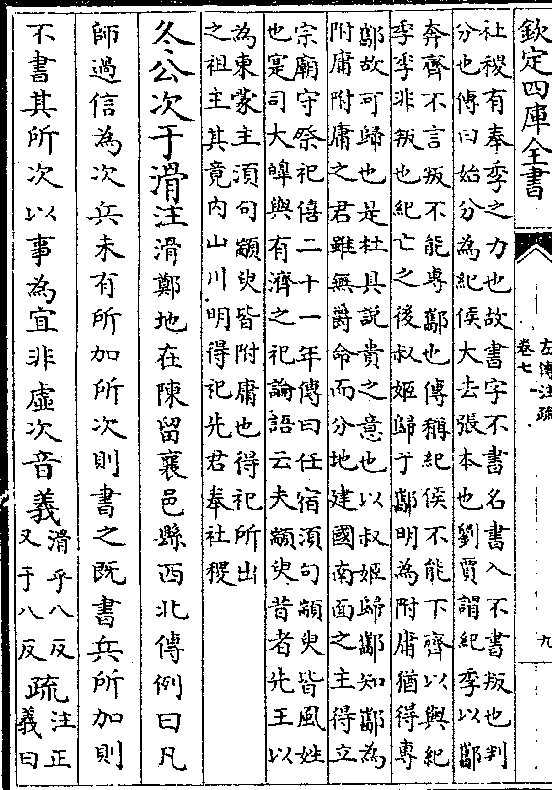 欽定四庫全書
左傳注疏
卷七
九
社稷有奉季之力也故書字不書名書入不書叛也判
分也傳曰始分為紀侯大去張本也劉賈謂紀季以酅
奔齊不言叛不能專酅也傳稱紀侯不能下齊以與紀
季季非叛也紀亡之後叔姬歸于酅明為附庸猶得專
酅故可歸也是杜具說貴之意也以叔姬歸酅知酅為
附庸附庸之君雖無爵命而分地建國南面之主得立
宗廟守祭祀僖二十一年傳曰任宿須句顓臾皆風姓
也寔司大皥與有濟之祀論語云夫顓臾昔者先王以
為東蒙主須句顓臾皆附庸也得祀所出
之祖主其竟內山川明得祀先君奉社稷
冬公次于滑注滑鄭地在陳留襄邑縣西北傳例曰凡
師過信為次兵未有所加所次則書之既書兵所加則
不書其所次以事為宜非虛次音義滑乎八反又于八反疏注正義曰